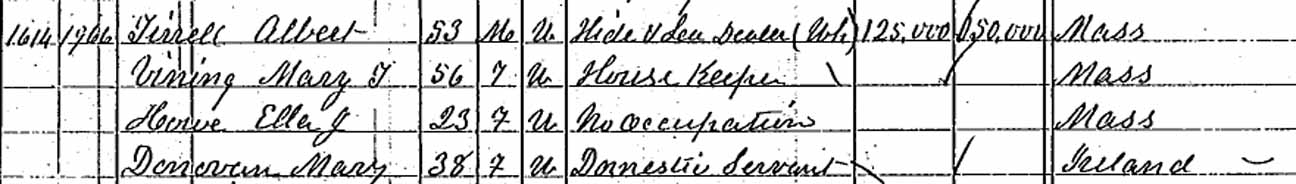 1614 1966 Tirrell Albert 53 M W Hide & Lea Dealer (Wh) 125,000 150,000 Mass
Vining Mary T 56 F W House Keeper Mass
Howe Ella J 23 F W No occupation Mass
Donovan Mary 38 F W Domestic Servant Ireland